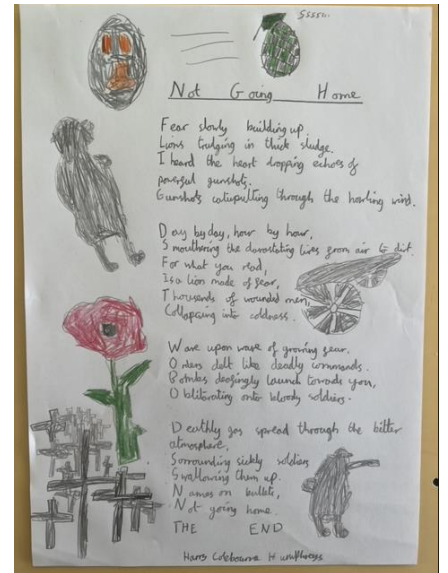 Sssss..
Not Going Home
Fear slowly building up.
Lions trudging in thick sludge.
I heard the heart dropping echoes of
powerful gunshots.
Gunshots catapulting through the howling wind.
Day by day, hour by hour,
Smouthering the davastating lives from air to dirt.
For what you read,
Is a lion made of fear,
Thousands of wounded men,
Collapsing into coldness.
Wave upon wave of growing fear.
Orders delt like deadly commands.
Bombes deafingly launch towards you,
Obliterating onto bloody soldiers.
Deathly gas spread through the bitter
atmosphere,
Sorrounding sickly soldiers
Swallowing them up.
Names on bullets,
Not going home.
THE END
Harry Colebourne Humphreys